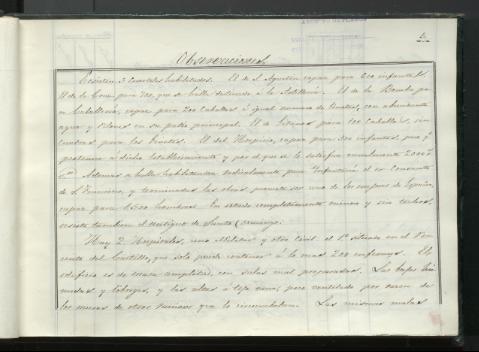 Observaciones
Existen 3 cuarteles habilitados. El de S. Agustin capaz para 200 infantes. El
de la para 700, que se halla destinado á la Artilleria. El de la Bomba para
caballeria, capaz para 200 caballos é igual numero de ginetes, con abundante
agua y pilones en su patio principal. El de para 100 caballos, sin
cuadras para los ginetes. El del Hospicio, capaz para 300 infantes, que
pertenece á dicho Establecimiento y por el que se le satisface anualmente 2000
Ademas se halla habilitandose para Infanteria el ex Convento
de S. Francisco, y terminadas las obras promete ser uno de los mejores de España,
capaz para 1500 hombres. En estado completamente ruinoso y sin techos,
existe tambien el antiguo de Santo Domingo.
Hay 2 Hospitales, uno Militar y otro Civil. el 1º situado en el
del Castillo, que solo puede contener á lo mas 200 enfermos. El
edificio es de mucha amplitud, con salas mal preparadas. Las bajas son
humedas y lobregas, y las altas á teja vana, poco ventiladas por causa de
los muros de otros edificios que lo circumbalan. Las mismas malas